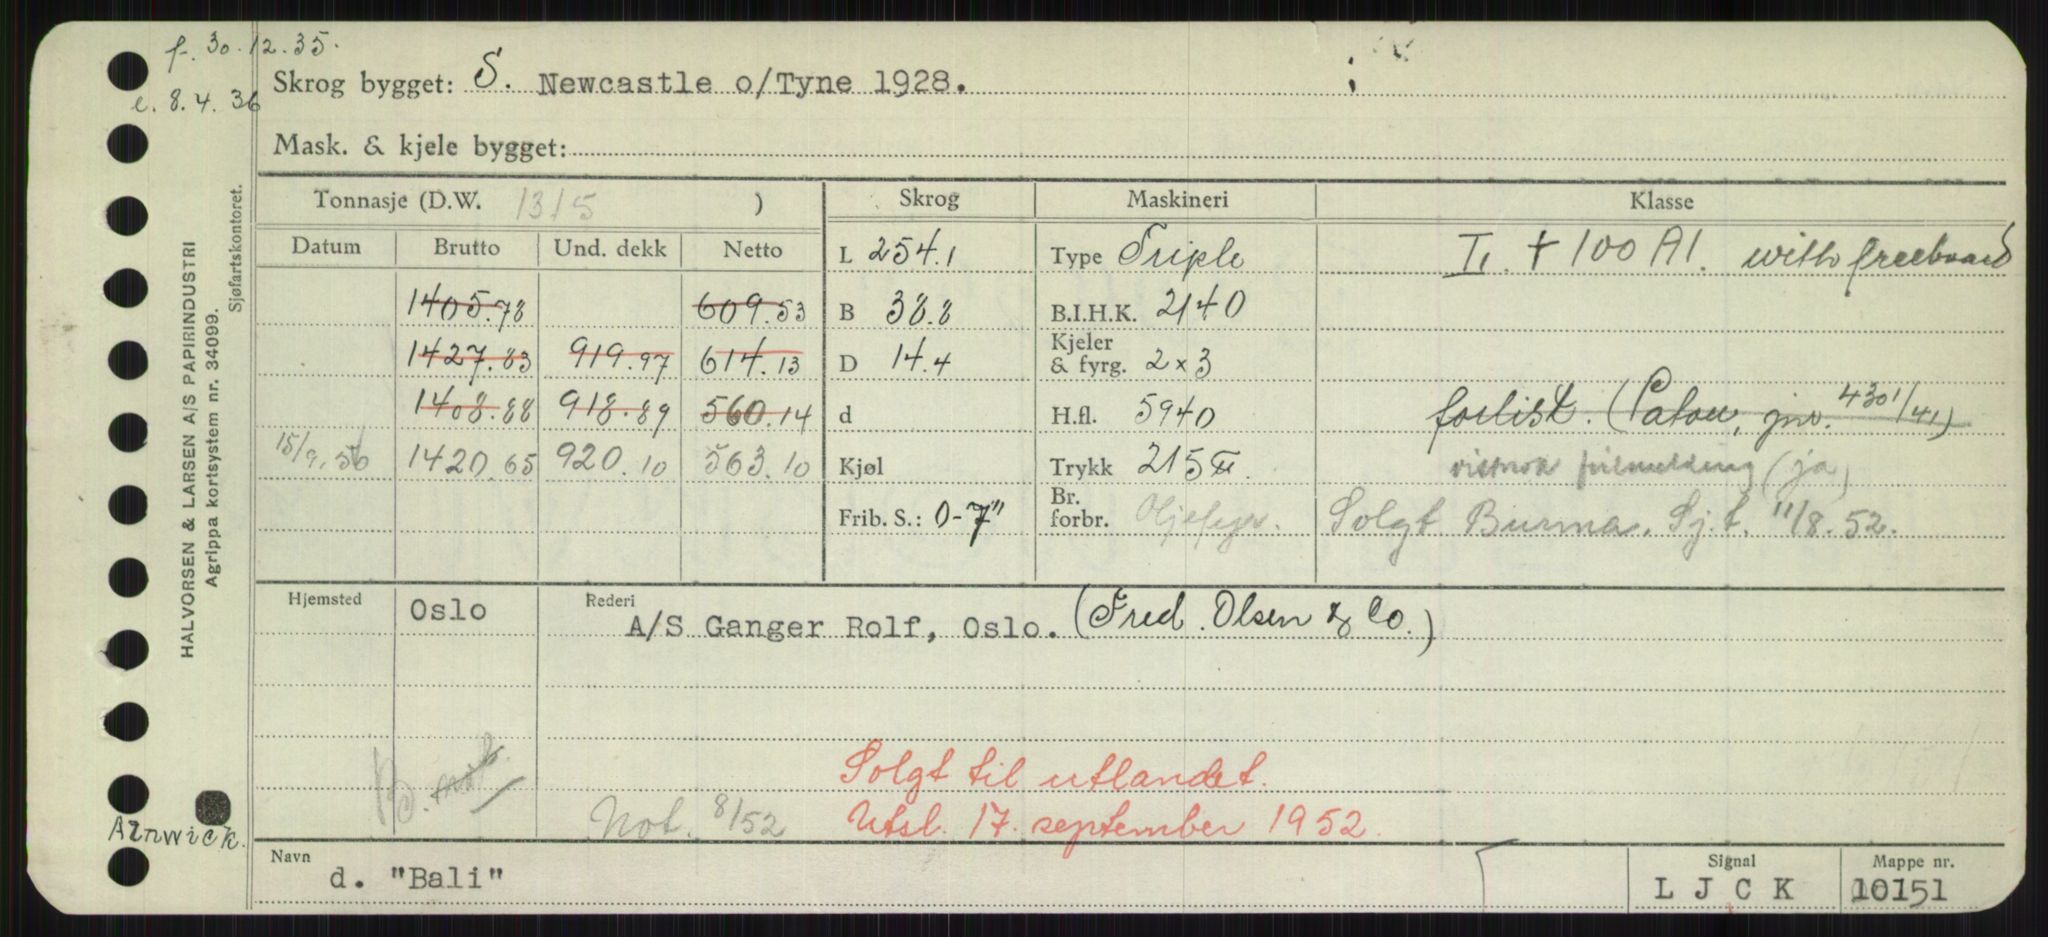 f. 30.12.35.
e. 8.4.36
Skrog bygget: S. Newcastle o/Tyne 1928.
Mask. & kjele bygget:
Tonnasje (D.W. 1315 ) Skrog Maskineri Klasse
Datum Brutto Und. dekk Netto L 254.1 Type Triple I. + 100 A1. with freeboard
1405.78 609.53 B 38.8 B.I.H.K. 2140
1427.83 919.97 614.13 D 14.4 Kjeler & fyrg. 2x3
1408.88 918.89 560.14 d H.fl. 5940 forlist. (Platou, jnr. 4301/41)
15/9.50 1420.65 920.10 563.10 Kjøl Trykk 215 feilmelding (ja)
Frib. S.: 0-7" Br. forbr. Oljefyr. Solgt Burma. Sj.t. 11/8.52.
Hjemsted Oslo Rederi A/S Ganger Rolf, Oslo. (Fred. Olsen & Co.)
Solgt til utlandet.
Not. 8/52 Utsl. 17. september 1952.
Navn d. "Bali" Signal L J C K Mappe nr. 10151
HALVORSEN & LARSEN A/S PAPIRINDUSTRI
Agrippa kortsystem nr. 34099.
Sjøfartskontoret.
Alnwick.